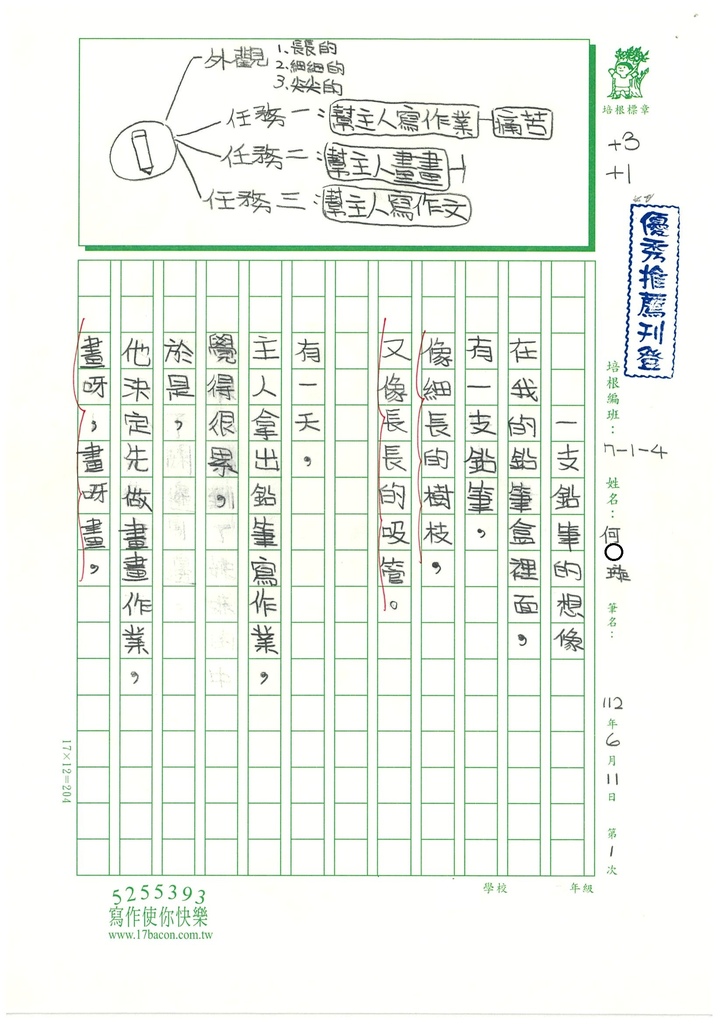 外觀
1、長長的
2、細細的
3、尖尖的
任務一:幫主人寫作業—痛苦
任務二:幫主人畫畫
任務三:幫主人寫作文
培根標章
+3
+1
優秀推薦刊登
培根編班: 7-1-4 姓名:何 筆名: 112年6月11日 第1次
學校 年級
一支鉛筆的想像
在我的鉛筆盒裡面,
有一支鉛筆,
像細長的樹枝,
又像長長的吸管。
有一天,
主人拿出鉛筆寫作業,
覺得很累,
於是,
他決定先做畫畫作業,
畫呀,畫呀畫,
17×12=204
5255393
寫作使你快樂
www.17bacon.com.tw